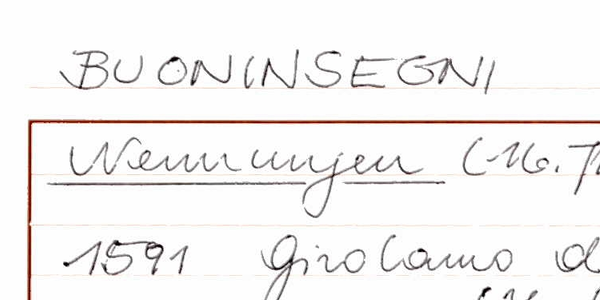 BUONINSEGNI
Nennungen (16. 
1591 Girolamo d